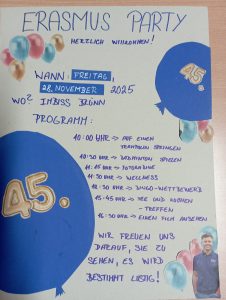 ERASMUS PARTY
HERZLICH WILLKOMMEN!
45.
WANN: FREITAG,
28. NOVEMBER 2025
WO? IMBISS BRÜNN
PROGRAMM:
10:00 UHR → AUF EINEM
TRAMPOLIN SPRINGEN
10:30 UHR → BADMINTON SPIELEN
11:15 UHR → FOTOGRAFIE
11:45 UHR → WELLNESS
12:30 UHR → BINGO-WETTBEWERB
15:45 UHR → TEE UND KUCHEN
- TREFFEN
16:30 UHR → EINEN FILM ANSEHEN
45.
WIR FREUEN UNS
DARAUF, SIE ZU
SEHEN, ES WIRD
BESTIMMT LUSTIG!